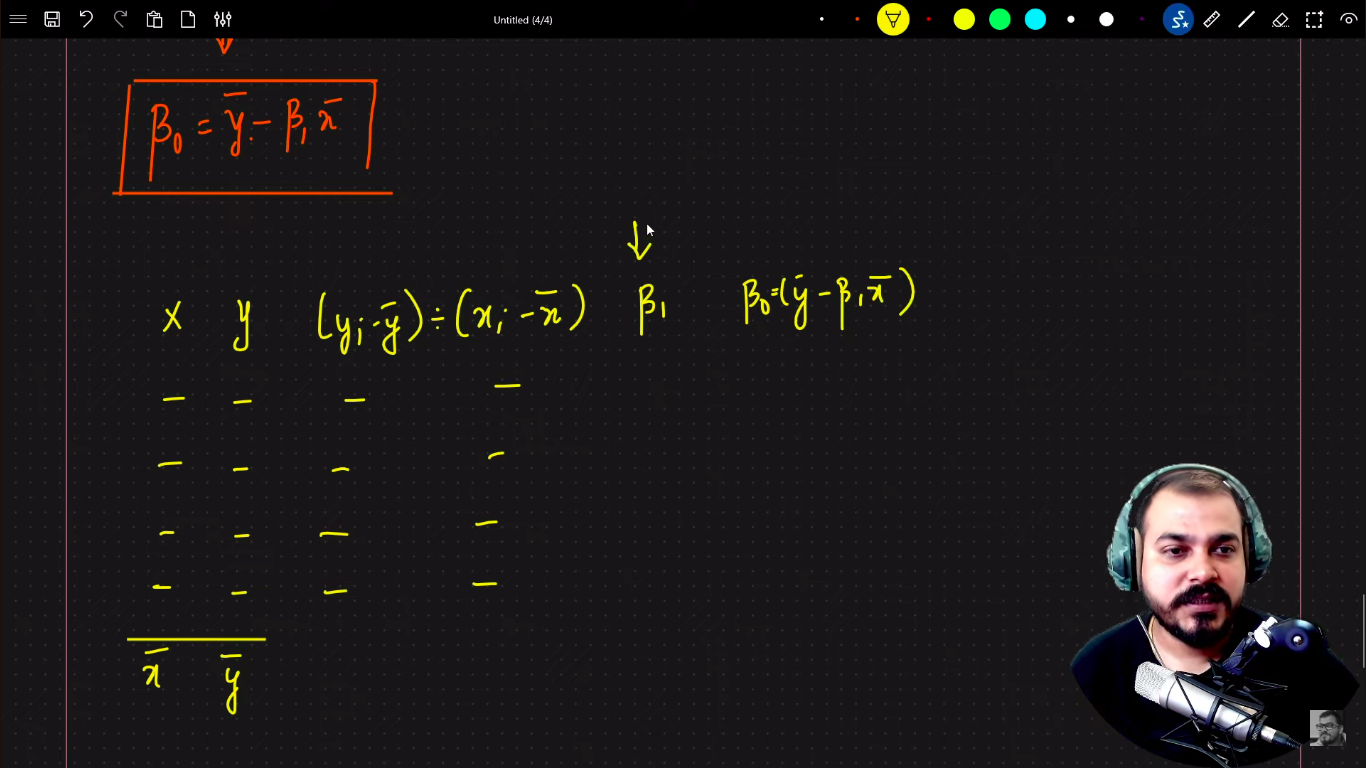 Untitled (4/4)
β₀ = ȳ - β₁ x̄
x y (yᵢ - ȳ) ÷ (xᵢ - x̄) β₁ β₀=(ȳ - β₁ x̄)
- - - -
- - - -
- - - -
- - - -
x̄ ȳ